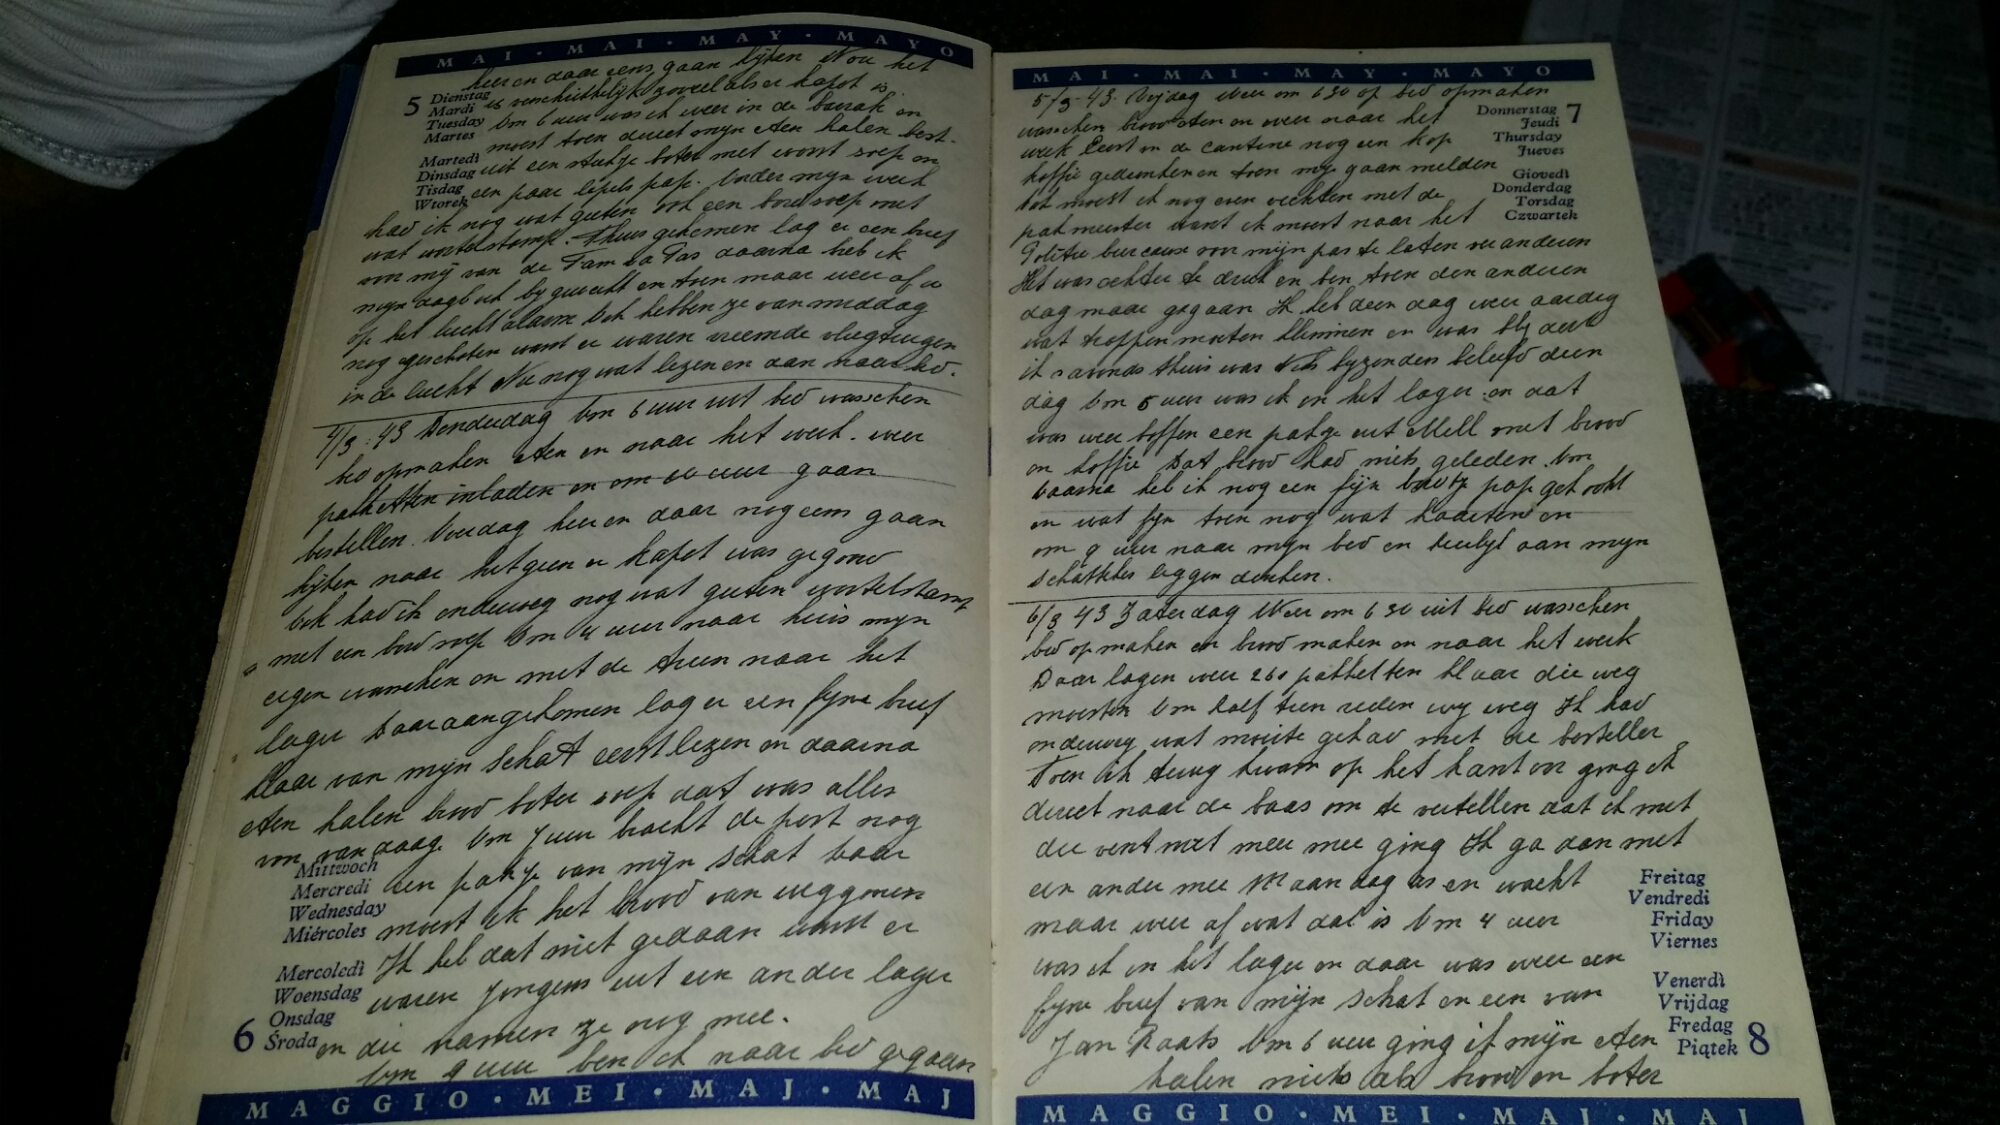 MAI · MAI · MAY · MAYO
hier en daar eens gaan kijken Nou het
is verschrikkelijk zoveel als er kapot is.
5 Dienstag
Mardi
Tuesday
Martes
Martedì
Dinsdag
Tisdag
Wtorek
Om 6 uur was ik weer in de barak en
moest toen direct mijn eten halen best-
uit een stukje boter met worst soep en
een paar lepels pap. Onder mijn werk
had ik nog wat gueten ook een bord soep met
wat wortelstamp. Thuis gekomen lag er een brief
voor mij van de Fam daarna heb ik
mijn dagboek bijgewerkt en toen maar weer af
op het lucht alarm Ook hebben ze van middag
nog geschoten want er waren vreemde vliegtuigen
in de lucht Nu nog wat lezen en dan naar bed.
4/3 : 43 Donderdag Om 6 uur uit bed wasschen
bed opmaken eten en naar het werk. weer
pakketten inladen en om 10 uur gaan
bestellen. Vandaag hier en daar nog eens gaan
kijken naar hetgeen er kapot was gegooid
Ook had ik onderweg nog wat gueten wortelstamp
met een bord soep Om 4 uur naar huis mijn
eigen wasschen en met de trein naar het
lager Daar aangekomen lag er een fijne brief
klaar van mijn schat eerst lezen en daarna
eten halen brood boter soep dat was alles
voor van daag. Om 7 uur bracht de post nog
Mittwoch
Mercredi
Wednesday
Miércoles
een pakje van mijn schat daar
moest ik het brood van weggooien
Mercoledì
Woensdag
Onsdag
6 Środa
Ik heb dat niet gedaan want er
waren jongens uit een ander lager
en die namen ze nog mee.
Om 9 uur ben ik naar bed gegaan
MAGGIO · MEI · MAJ · MAJ
MAI · MAI · MAY · MAYO
5/3-43. Vrijdag Weer om 6 30 op bed opmaken
wasschen brood eten en weer naar het
werk Eerst in de cantine nog een kop
koffie gedronken en toen mij gaan melden
Donnerstag 7
Jeudi
Thursday
Jueves
Giovedì
Donderdag
Torsdag
Czwartek
Dat moest ik nog even vechten met de
patmeester want ik moest naar het
Politie bureau voor mijn pas te laten veranderen
Het was echter te druk en ben toen den anderen
dag maar gegaan Ik heb deen dag weer aardig
wat trappen moeten klimmen en was blij dat
ik s avonds thuis was Niks byzonders beleefd deen
dag Om 5 uur was ik in het lager en dat
was weer boffen een pakje uit Mell met brood
en koffie Dat brood had niets geleden.
Daarna heb ik nog een fijn bordtje pap gekookt
en wat fijn toen nog wat kaarten en
om 9 uur naar mijn bed en heerlijk aan mijn
schatteke liggen denken.
6/3 43 Zaterdag Weer om 6 30 uit bed wasschen
bed opmaken en brood maken en naar het werk
Daar lagen weer 260 pakketten klaar die weg
moesten Om half tien reden wy weg Ik had
onderweg wat moeite gehad met de besteller
Toen ik terug kwam op het kantoor ging ik
direct naar de baas om te vertellen dat ik met
die vent niet meer mee ging Ik ga dan met
een ander mee Maandag as en wacht
maar weer af wat dat is Om 4 uur
Freitag
Vendredi
Friday
Viernes
was ik in het lager en daar was weer een
fijne brief van mijn schat en een van
Jan Raats Om 6 uur ging ik mijn eten
halen niets als brood en boter
Venerdì
Vrijdag
Fredag
Piątek 8
MAGGIO · MEI · MAJ · MAJ